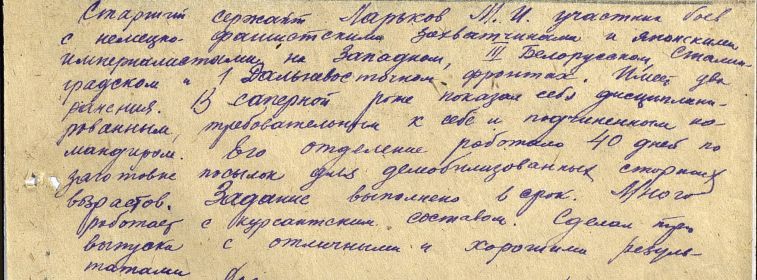 Старший сержант Марьков М. И. участник боев
с немецко-фашистскими захватчиками и японскими
империалистами на Западном, III Белорусском, Сталин-
градском и 1 Дальневосточном фронтах. Имеет два
ранения. В саперной роте показал себя дисциплини-
рованным, требовательным к себе и подчиненным ко-
мандиром. Его отделение работало 40 дней по
заготовке посылок для демобилизованных старших
возрастов. Задание выполнено в срок. Много
работает с курсантским составом. Сделал три
выпуска с отличными и хорошими резуль-
татами